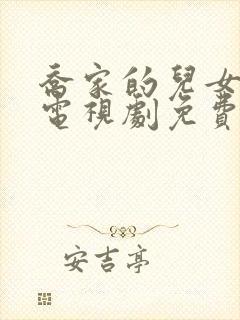 喬家的兒女
電視劇免費
安吉亭